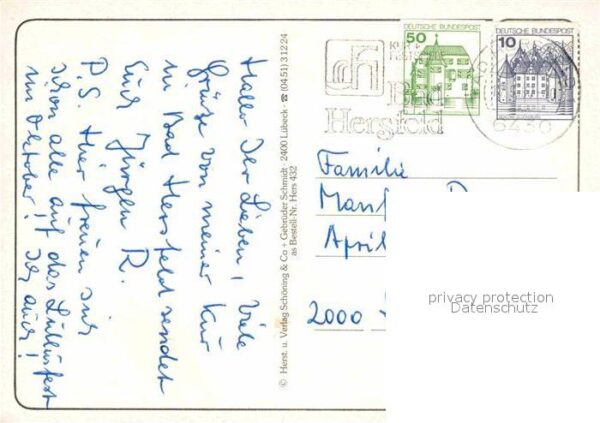 Hallo Ihr Lieben! Viele
Grüße von meiner Kur
in Bad Hersfeld sendet
Euch Jürgen R.
P.S. Hier freuen sich
schon alle auf das Lullusfest
im Oktober! Ich auch!
© Herst. u. Verlag Schöning & Co + Gebrüder Schmidt · 2400 Lübeck · ☎ (0451) 31224
as Bestell-Nr. Hers 432
DEUTSCHE BUNDESPOST
50
DEUTSCHE BUNDESPOST
10
Bad
Hersfeld
6430
Familie
April
2000
privacy protection
Datenschutz